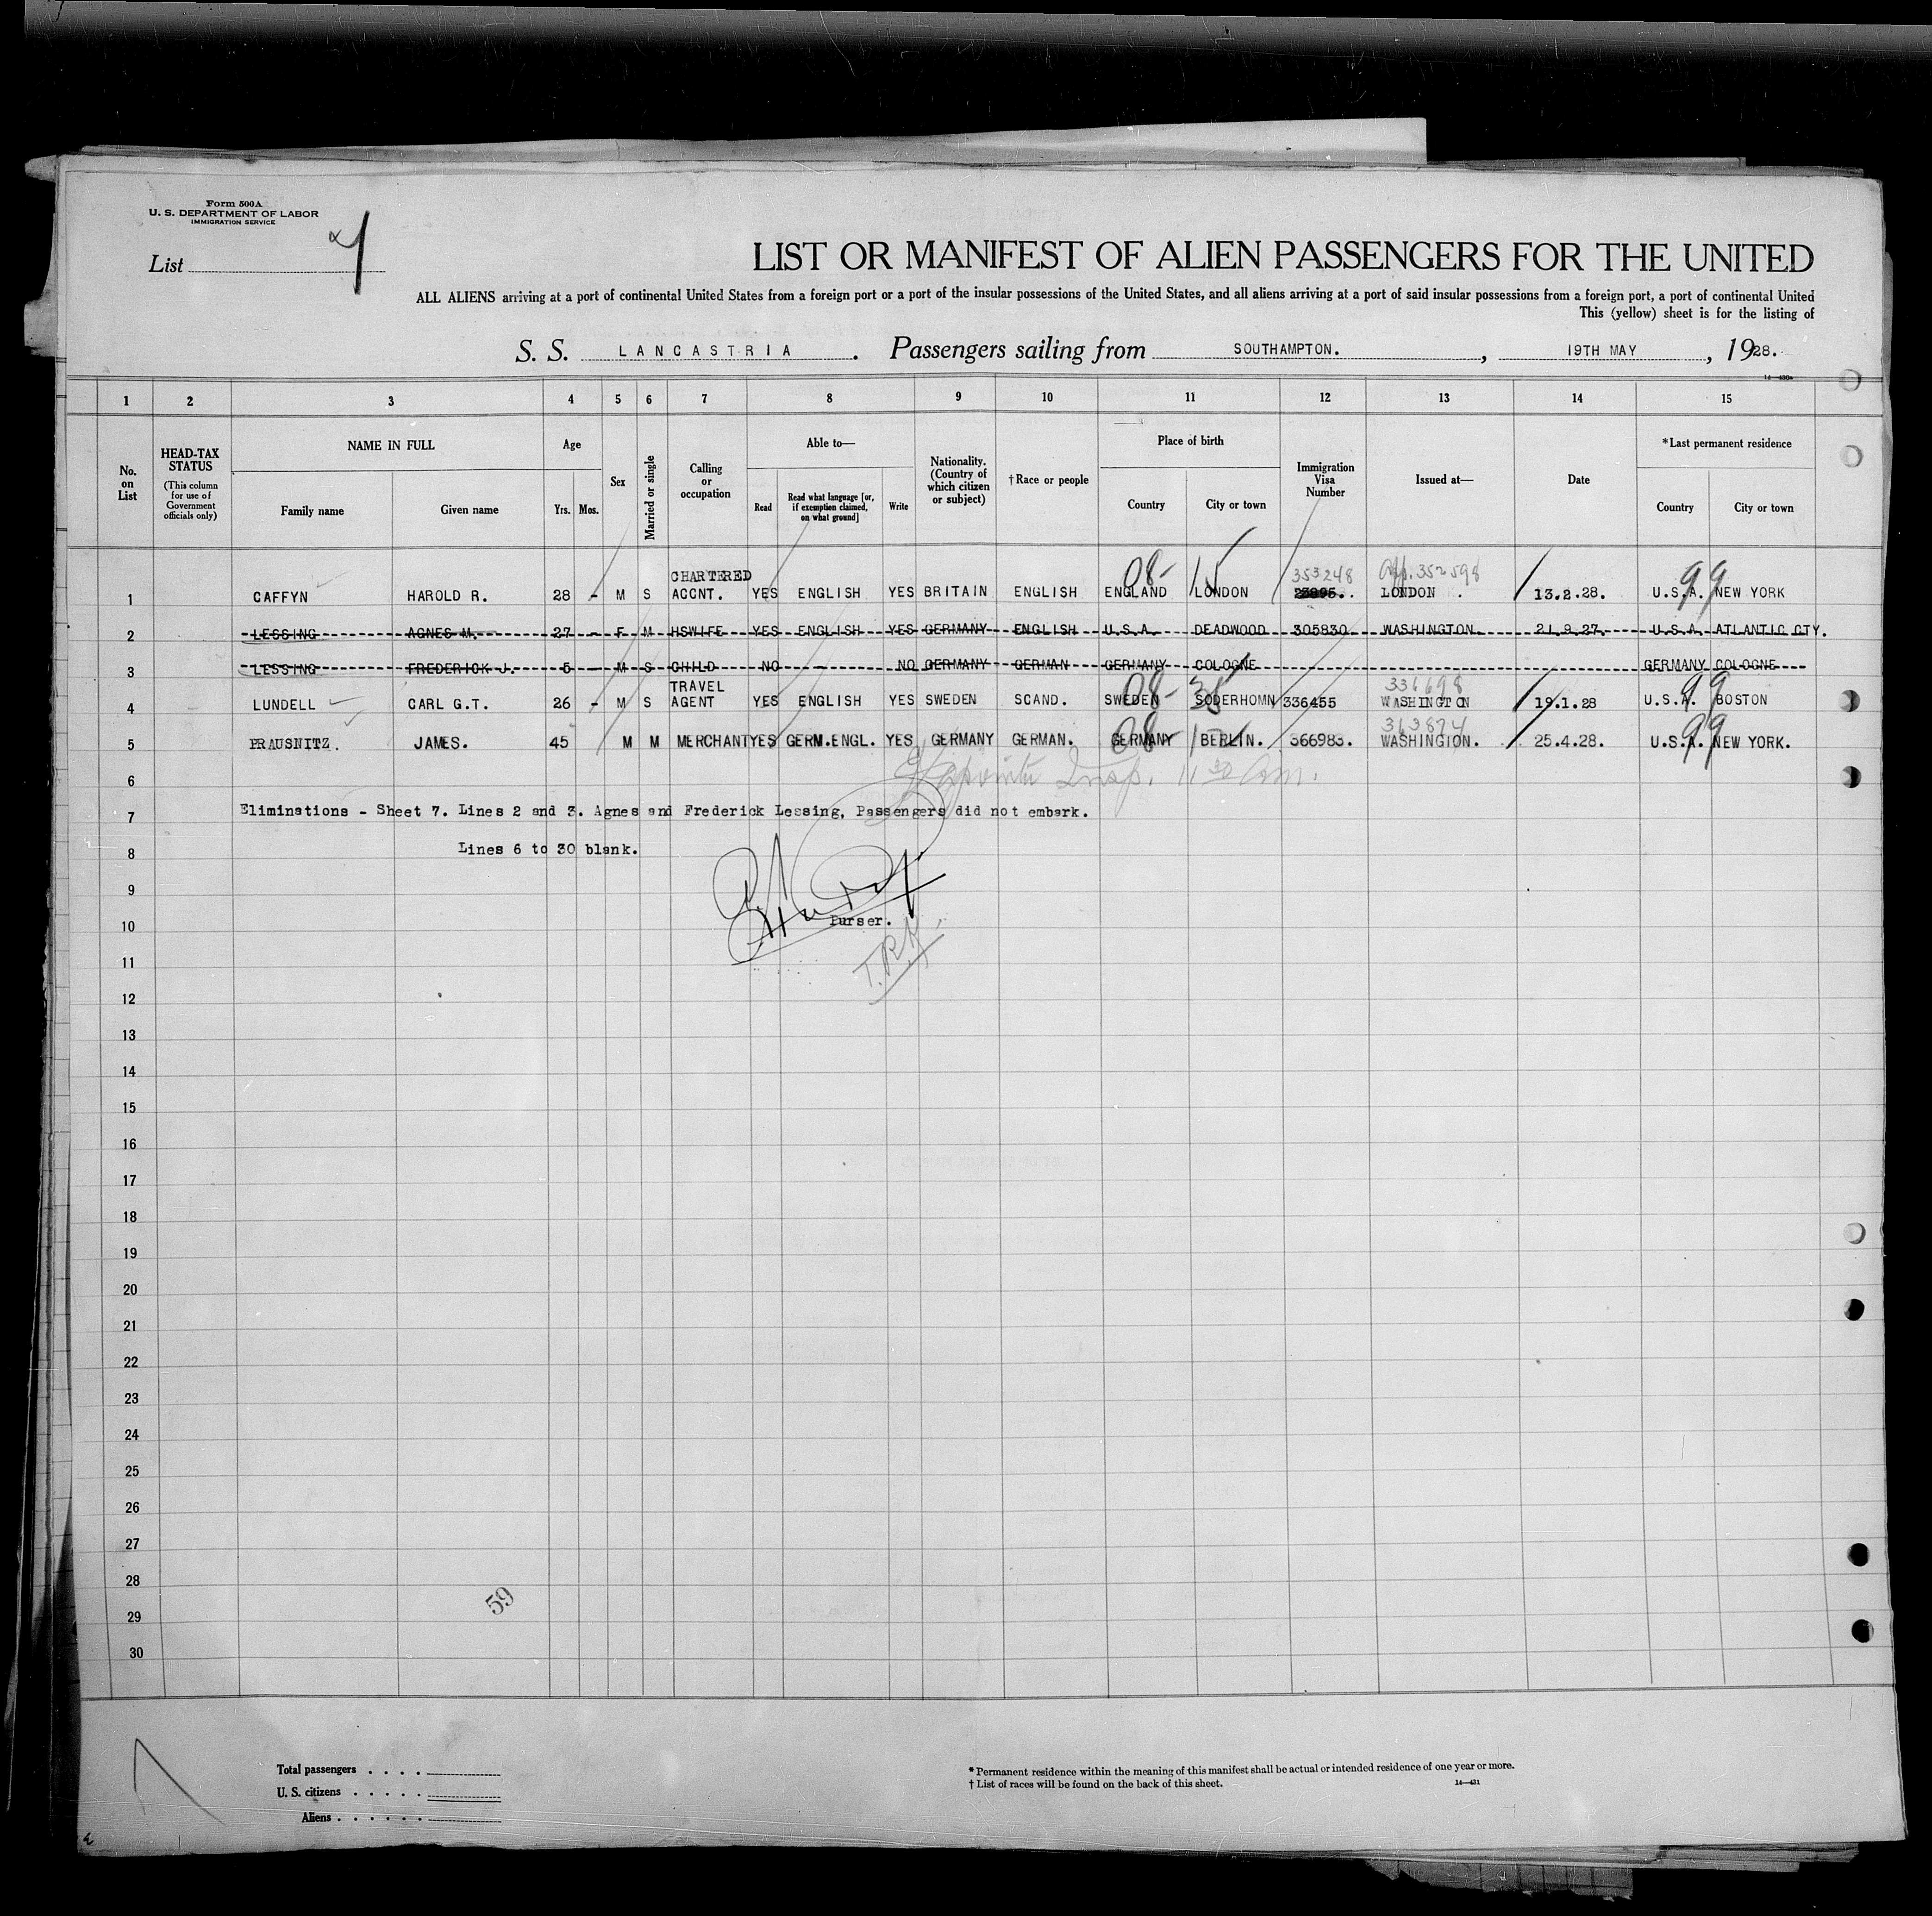 Form 500A
U. S. DEPARTMENT OF LABOR
IMMIGRATION SERVICE
List 7
LIST OR MANIFEST OF ALIEN PASSENGERS FOR THE UNITED
ALL ALIENS arriving at a port of continental United States from a foreign port or a port of the insular possessions of the United States, and all aliens arriving at a port of said insular possessions from a foreign port, a port of continental United
This (yellow) sheet is for the listing of
S. S. LANCASTRIA. Passengers sailing from SOUTHAMPTON. , 19TH MAY , 1928.
1 2 3 4 5 6 7 8 9 10 11 12 13 14 15
No. on List
HEAD-TAX STATUS (This column for use of Government officials only)
NAME IN FULL
Family name Given name
Age
Yrs. Mos.
Sex
Married or single
Calling or occupation
Able to—
Read Read what language [or, if exemption claimed, on what ground] Write
Nationality. (Country of which citizen or subject)
†Race or people
Place of birth
Country City or town
Immigration Visa Number
Issued at—
Date
*Last permanent residence
Country City or town
08- 15 353248 App. 352598 99
1 CAFFYN HAROLD R. 28 - M S CHARTERED ACCNT. YES ENGLISH YES BRITAIN ENGLISH ENGLAND LONDON LONDON . 13.2.28. U.S.A. NEW YORK
2 LESSING AGNES M. 27 - F M HSWIFE YES ENGLISH YES GERMANY ENGLISH U.S.A. DEADWOOD 305830 WASHINGTON. 21.9.27. U.S.A. ATLANTIC CTY.
3 LESSING FREDERICK J. 5 - M S CHILD NO - NO GERMANY GERMAN GERMANY COLOGNE GERMANY COLOGNE
08- 35 336698 99
4 LUNDELL CARL G.T. 26 - M S TRAVEL AGENT YES ENGLISH YES SWEDEN SCAND. SWEDEN SODERHOMN 336455 WASHINGTON 19.1.28 U.S.A. BOSTON
08- 363874 99
5 PRAUSNITZ. JAMES. 45 M M MERCHANT YES GERM.ENGL. YES GERMANY GERMAN. GERMANY BERLIN. 366983. WASHINGTON. 25.4.28. U.S.A. NEW YORK.
6
7 Eliminations - Sheet 7. Lines 2 and 3. Agnes and Frederick Lessing, Passengers did not embark.
8 Lines 6 to 30 blank.
9
10 Purser.
11
12
13
14
15
16
17
18
19
20
21
22
23
24
25
26
27
28
29
30
59
Total passengers . . . .
U. S. citizens . . . . .
Aliens . . . . . .
* Permanent residence within the meaning of this manifest shall be actual or intended residence of one year or more.
† List of races will be found on the back of this sheet. 14—431